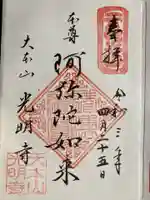 奉拝
令和三年
四月二十五日
本尊
阿弥陀如来
大本山
光明寺